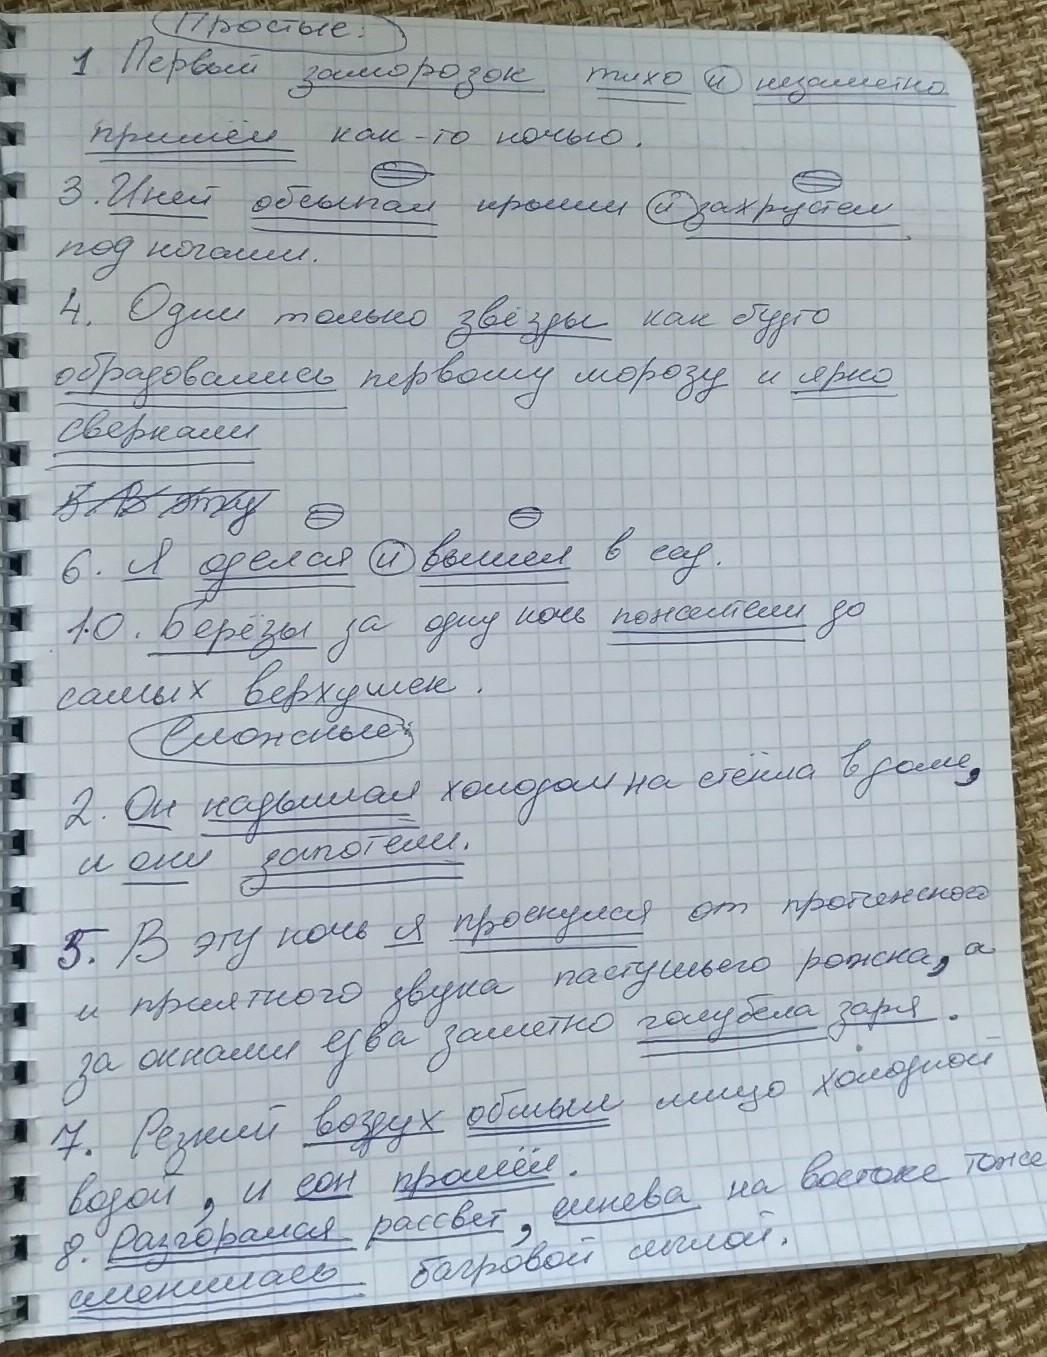 Простые:
1 Первый заморозок тихо и незаметно
пришёл как-то ночью.
3. Иней обсыпал крыши и захрустел
под ногами.
4. Одни только звёзды как будто
обрадовались первому морозу и ярко
сверкали
5. В эту
6. Я оделся и вышел в сад.
10. Берёзы за одну ночь пожелтели до
самых верхушек.
Сложные:
2. Он надышал холодом на стёкла в доме,
и они запотели.
5. В эту ночь я проснулся от протяжного
и приятного звука пастушьего рожка, а
за окнами едва заметно голубела заря.
7. Резкий воздух обмыл лицо холодной
водой, и сон прошёл.
8. Разгорался рассвет, синева на востоке тоже
сменилась багровой мглой.